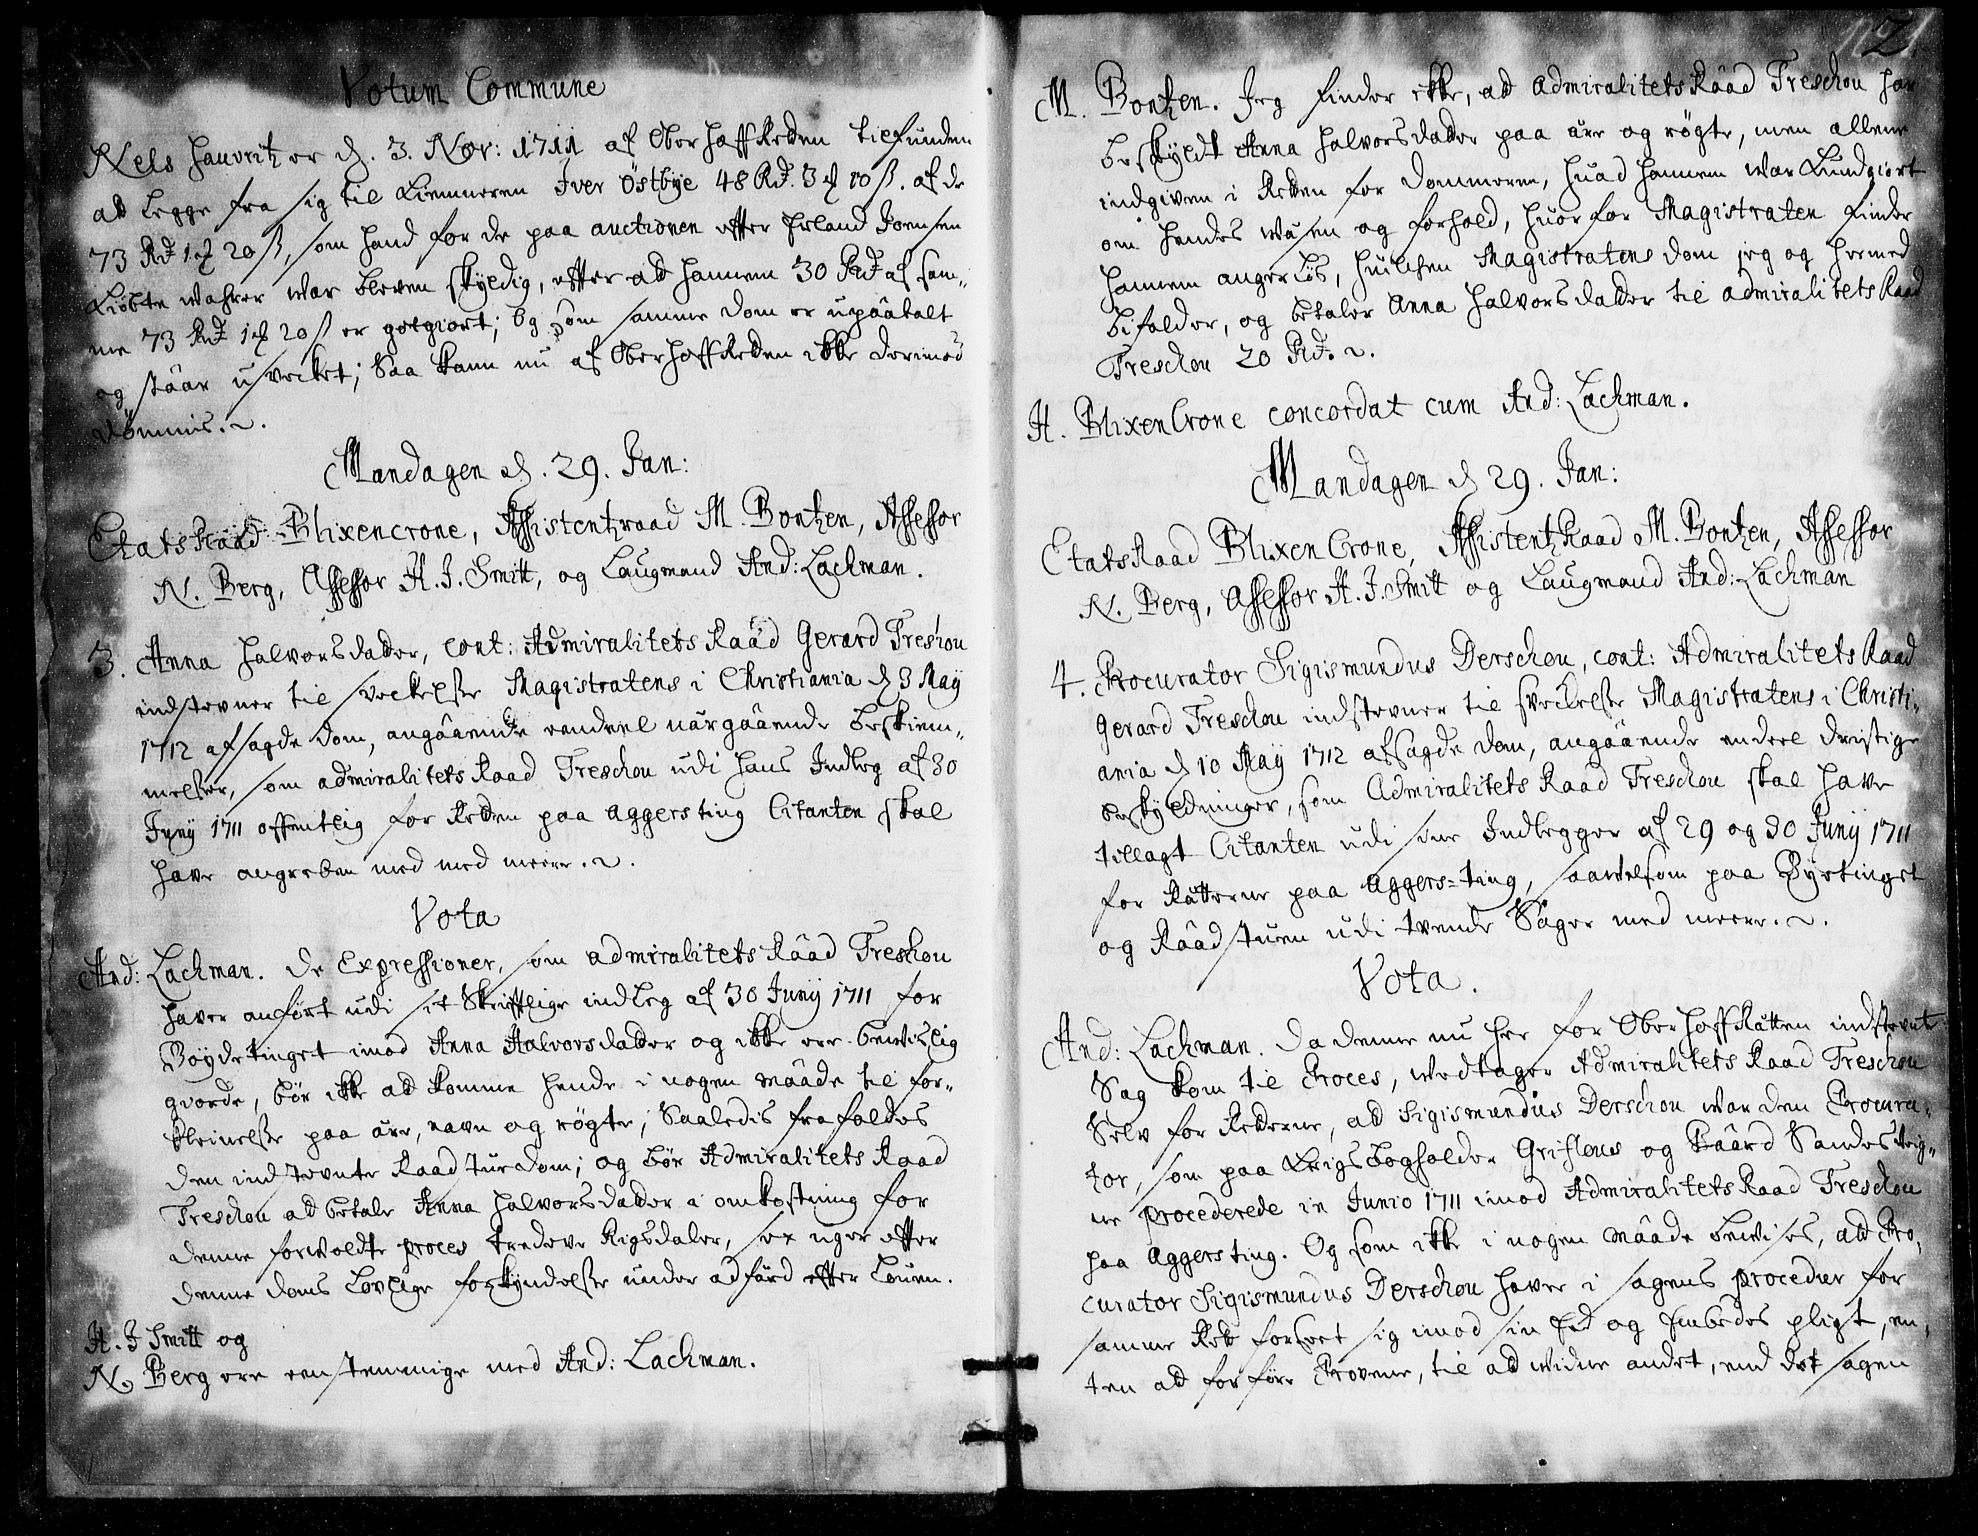 Votum Commune
Nels Hauvritz er d. 3. Nov: 1711 af OberHoffRetten tilfunden
at legge fra sig til Kiemneren Iver Östbÿe 48 Rd. 3 ß 10 ß. af de
73 Rd 1 ß 20 ß, som hand for de paa auctionen efter Erland Joensen
kiöbte wahrer war bleven skÿldig, efter at hannem 30 Rd af sam-
me 73 Rd 1 ß 20 ß er godgiort; Og som samme dom er upåatalt
og ståar usvecket; Saa kann nu af OberHoffRetten ikke derimod
dömmis.
Mandagen d. 29. Jan:
EtatsRaad Blixencrone, Assistentzraad M. Bontzen, Assessor
N. Berg, Assessor H. J. Smitt, og Laugmand And: Lachman.
3. Anna Halvorsdatter, cont: AdmiralitetsRaad Gerard Treschou
indstevner til svekelse Magistratens i Christiania d 3 Maÿ
1712 afsagde dom, angåaende eendeel närgåaende beskiem-
melser, som admiralitetsRaad Treschou udi hans Indleg af 30
Junÿ 1711 offentlig for Retten paa Aggersting Citanten skal
have angreben med med meere.
Vota
And: Lachman. De Expressioner, som admiralitetsRåad Treschou
haver anfört udi sit Skriftlige indleg af 30 Junÿ 1711 for
Böÿdetinget imod Anna Halvorsdatter og ikke ere bewislig
giorde, bör ikke at komme hende i nogen måade til for-
kleinelse paa äre, navn og rögte; Saaledis frafaldes
den indstevnte Raadstuedom; og bör AdmiralitetsRaad
Treschou at betale Anna Halvorsdatter i omkostning for
denne forvoldte proces tredeve Rigsdaler, sex uger efter
denne doms Lovlige forkÿndelse under adfärd efter Louen.
H. J Smitt og
N. Berg ere eenstemmige med And: Lachman.
2
M. Bontzen. Jeg finder ikke, at AdmiralitetsRåad Treschou har
beskÿldt Anna Halvorsdatter paa äre og rögte, men allene
indgiven i Retten for dommeren, huad hannem war kundgiort
om hendes wäsen og forhold, huorfor Magistraten finder
hannem angerlös, huilchen Magistratens dom jeg og hermed
bifalder, og betaler Anna Halvorsdatter til admiralitetsRaad
Treschou 20 Rd.
H. BlixenCrone concordat cum And: Lachman.
Mandagen d 29. Jan:
EtatsRaad BlixenCrone, AssistentzRaad M. Bontzen, Assessor
N. Berg, Assessor H. J. Smitt og Laugmand And: Lachman
4. Procurator Sigismundus Derschou, cont: AdmiralitetsRaad
Gerard Treschou indstevner til svekelse Magistratens i Christi-
ania d 10 Maÿ 1712 afsagde dom, angåaende endeel dristige
beskÿldninger, som AdmiralitetsRaad Treschou skal have
tillagt Citanten udi sine Indlegger af 29 og 30 Junÿ 1711
for Rätterne paa Aggers-ting, saavelsom paa Bÿetinget
og Råadstuen udi tvende Sager med meere.
Vota.
And: Lachman. Da denne nu her for OberHoffRätten indstevnt
Sag kom til Proces, wedtager AdmiralitetsRaad Treschou
Selv for Retterne, at Sigismundus Derschou war den Procura-
tor, som paa Krigsbogholder Griflous og Båard Sandes Veig-
ne procederede in Junio 1711 imod AdmiralitetsRaad Treschou
paa Aggersting. Og som ikke i nogen måade bewises, at Pro-
curator Sigismundus Derschou haver i sagens procedur for
samme Ret forseet sig imod sin Eed og Embedes pligt, en-
ten at forföre Provene, til at widne andet, end det sagen